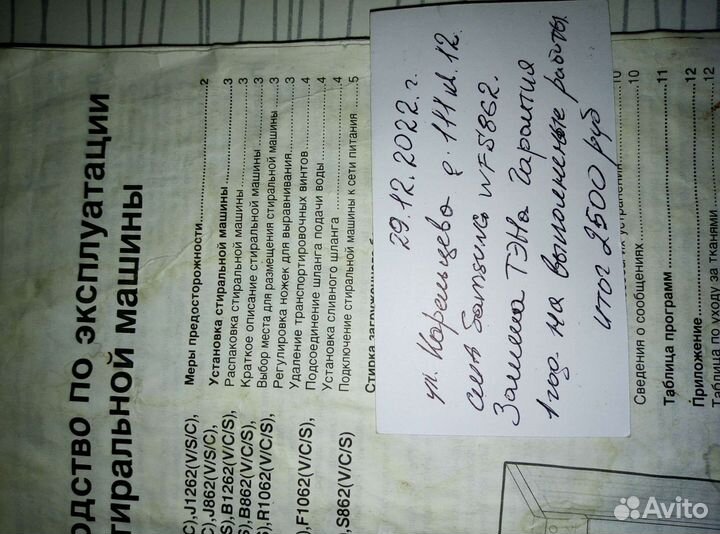 ...одство по эксплуатации
тиральной машины
Меры предосторожности 2
Установка стиральной машины 3
Распаковка стиральной машины 3
Краткое описание стиральной машины 3
Выбор места для размещения стиральной машины 3
Регулировка ножек для выравнивания 3
Удаление транспортировочных винтов 4
Подсоединение шланга подачи воды 4
Установка сливного шланга 4
Подключение стиральной машины к сети питания 5
C),J1262(V/S/C),
),J862(V/S/C),
S),B1262(V/C/S),
),B862(V/C/S),
S),R1062(V/C/S),
),F1062(V/C/S),
),S862(V/C/S)
29.12.2022 г.
ул. Карельцева д 111 12.
Samsung WF5862.
Замена ТЭНа Гарантия
1 год. на выполненые работы.
итог 2500 руб
10
Сведения о сообщениях 10
Таблица программ 11
Приложение 12
Таблица по уходу за тканями 12
Avito